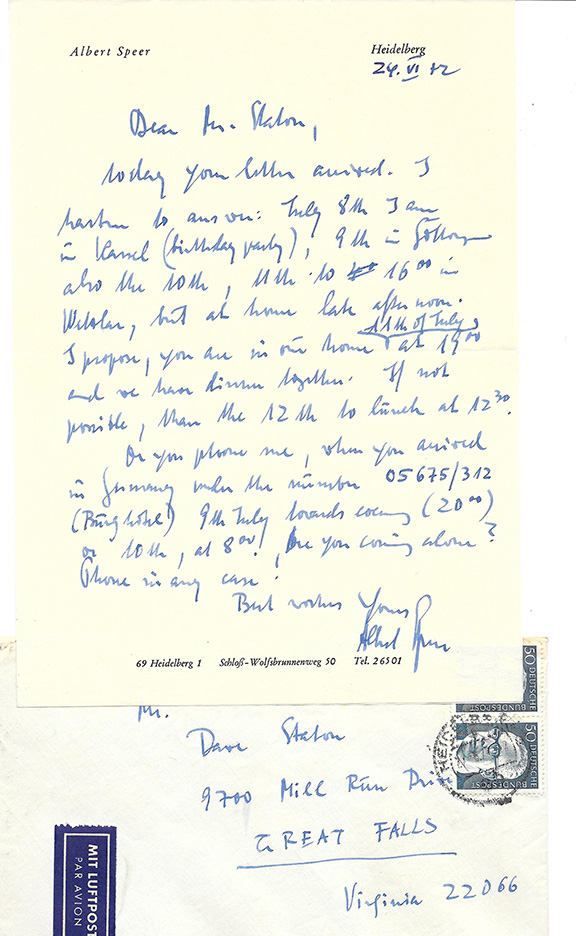 Albert Speer
Heidelberg
24. VI 72
Dear Mr. Staton,
today your letter arrived. I
hasten to answer: July 8th I am
in Kassel (birthday party), 9th in
also the 10th, 11th to 16⁰⁰ in
Wetzlar, but at home late afternoon.
11th of July
I propose, you are in our home at 19⁰⁰
and we have dinner together. If not
possible, than the 12th to lunch at 12³⁰.
Or you phone me, when you arrived
in Germany under the number 05675/312
(Burghotel) 9th July towards evening (20⁰⁰)
or 10th, at 8⁰⁰. Are you coming alone?
Phone in any case!
Best wishes Yours
Albert Speer
69 Heidelberg 1 Schloß-Wolfsbrunnenweg 50 Tel. 26501
Mr.
Dave Staton
9700 Mill Run Drive
GREAT FALLS
Virginia 22066
MIT LUFTPOST
PAR AVION
50 DEUTSCHE BUNDESPOST
50 DEUTSCHE BUNDESPOST